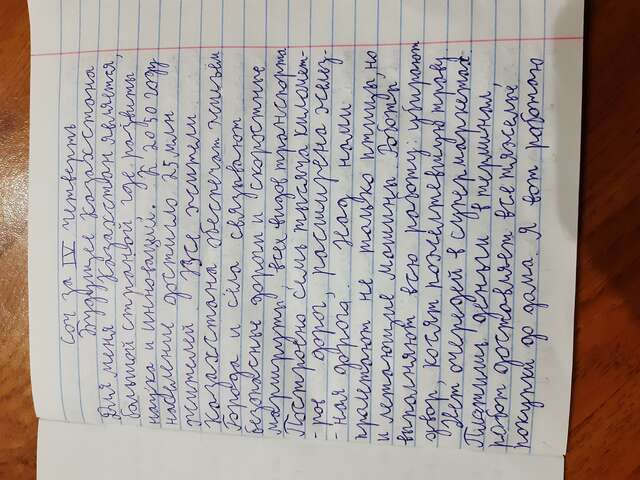 СОЧ за IV четверть
Будущее Казахстана
Для меня Казахстан является,
большой страной где развиты
наука и инновации. К 2050 году
население достигло 25 млн
жителей. Все жители
Казахстана обеспечат жильём
Города и сёла связывают
безопасные дороги и скоростные
маршруты всех видов транспорта
Построено семь тысяча километ-
-ров дорог, расширена желез-
-ная дорога. Над нами
пролетают не только птицы, но
и летающие машины. Роботы
выполняют всю работу: убирают
двор, косят пожелтевшую траву.
Нет очередей в супермаркетах.
Платишь деньги в терминал
робот доставляет все тяжёлые
покупки до дома. Я вот работаю